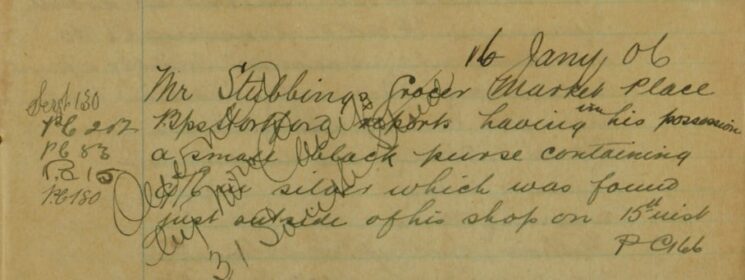 16 Jany 06
Sergt 130
PC 202
PC 83
PC 15
PC 180
Mr Stubbing Grocer Market Place
Bps Stortford reports having in his possession
a small black purse containing
in silver which was found
just outside of his shop on 15th inst
PC 166
31 South